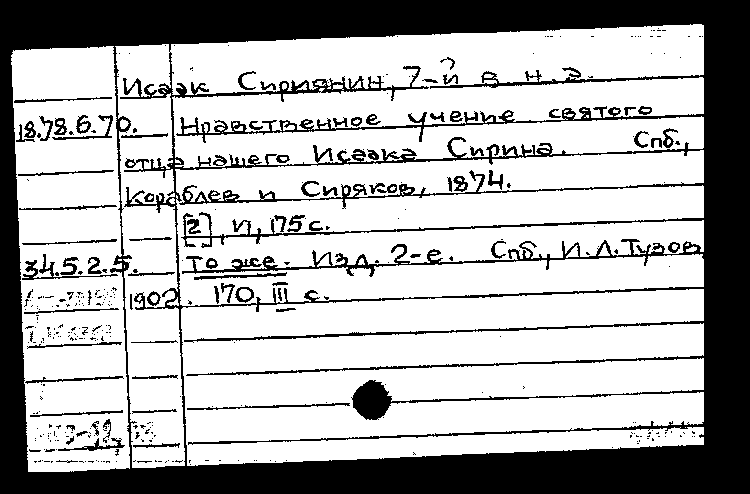 Исаак Сириянин, 7-й в. н.э.
18.78.6.70. Нравственное учение святого
отца нашего Исаака Сирина. Спб.,
Кораблев и Сиряков, 1874.
[2], VI, 175 с.
34.5.2.5. То же. Изд. 2-е. Спб., И.Л.Тузов,
1902. 170, III с.